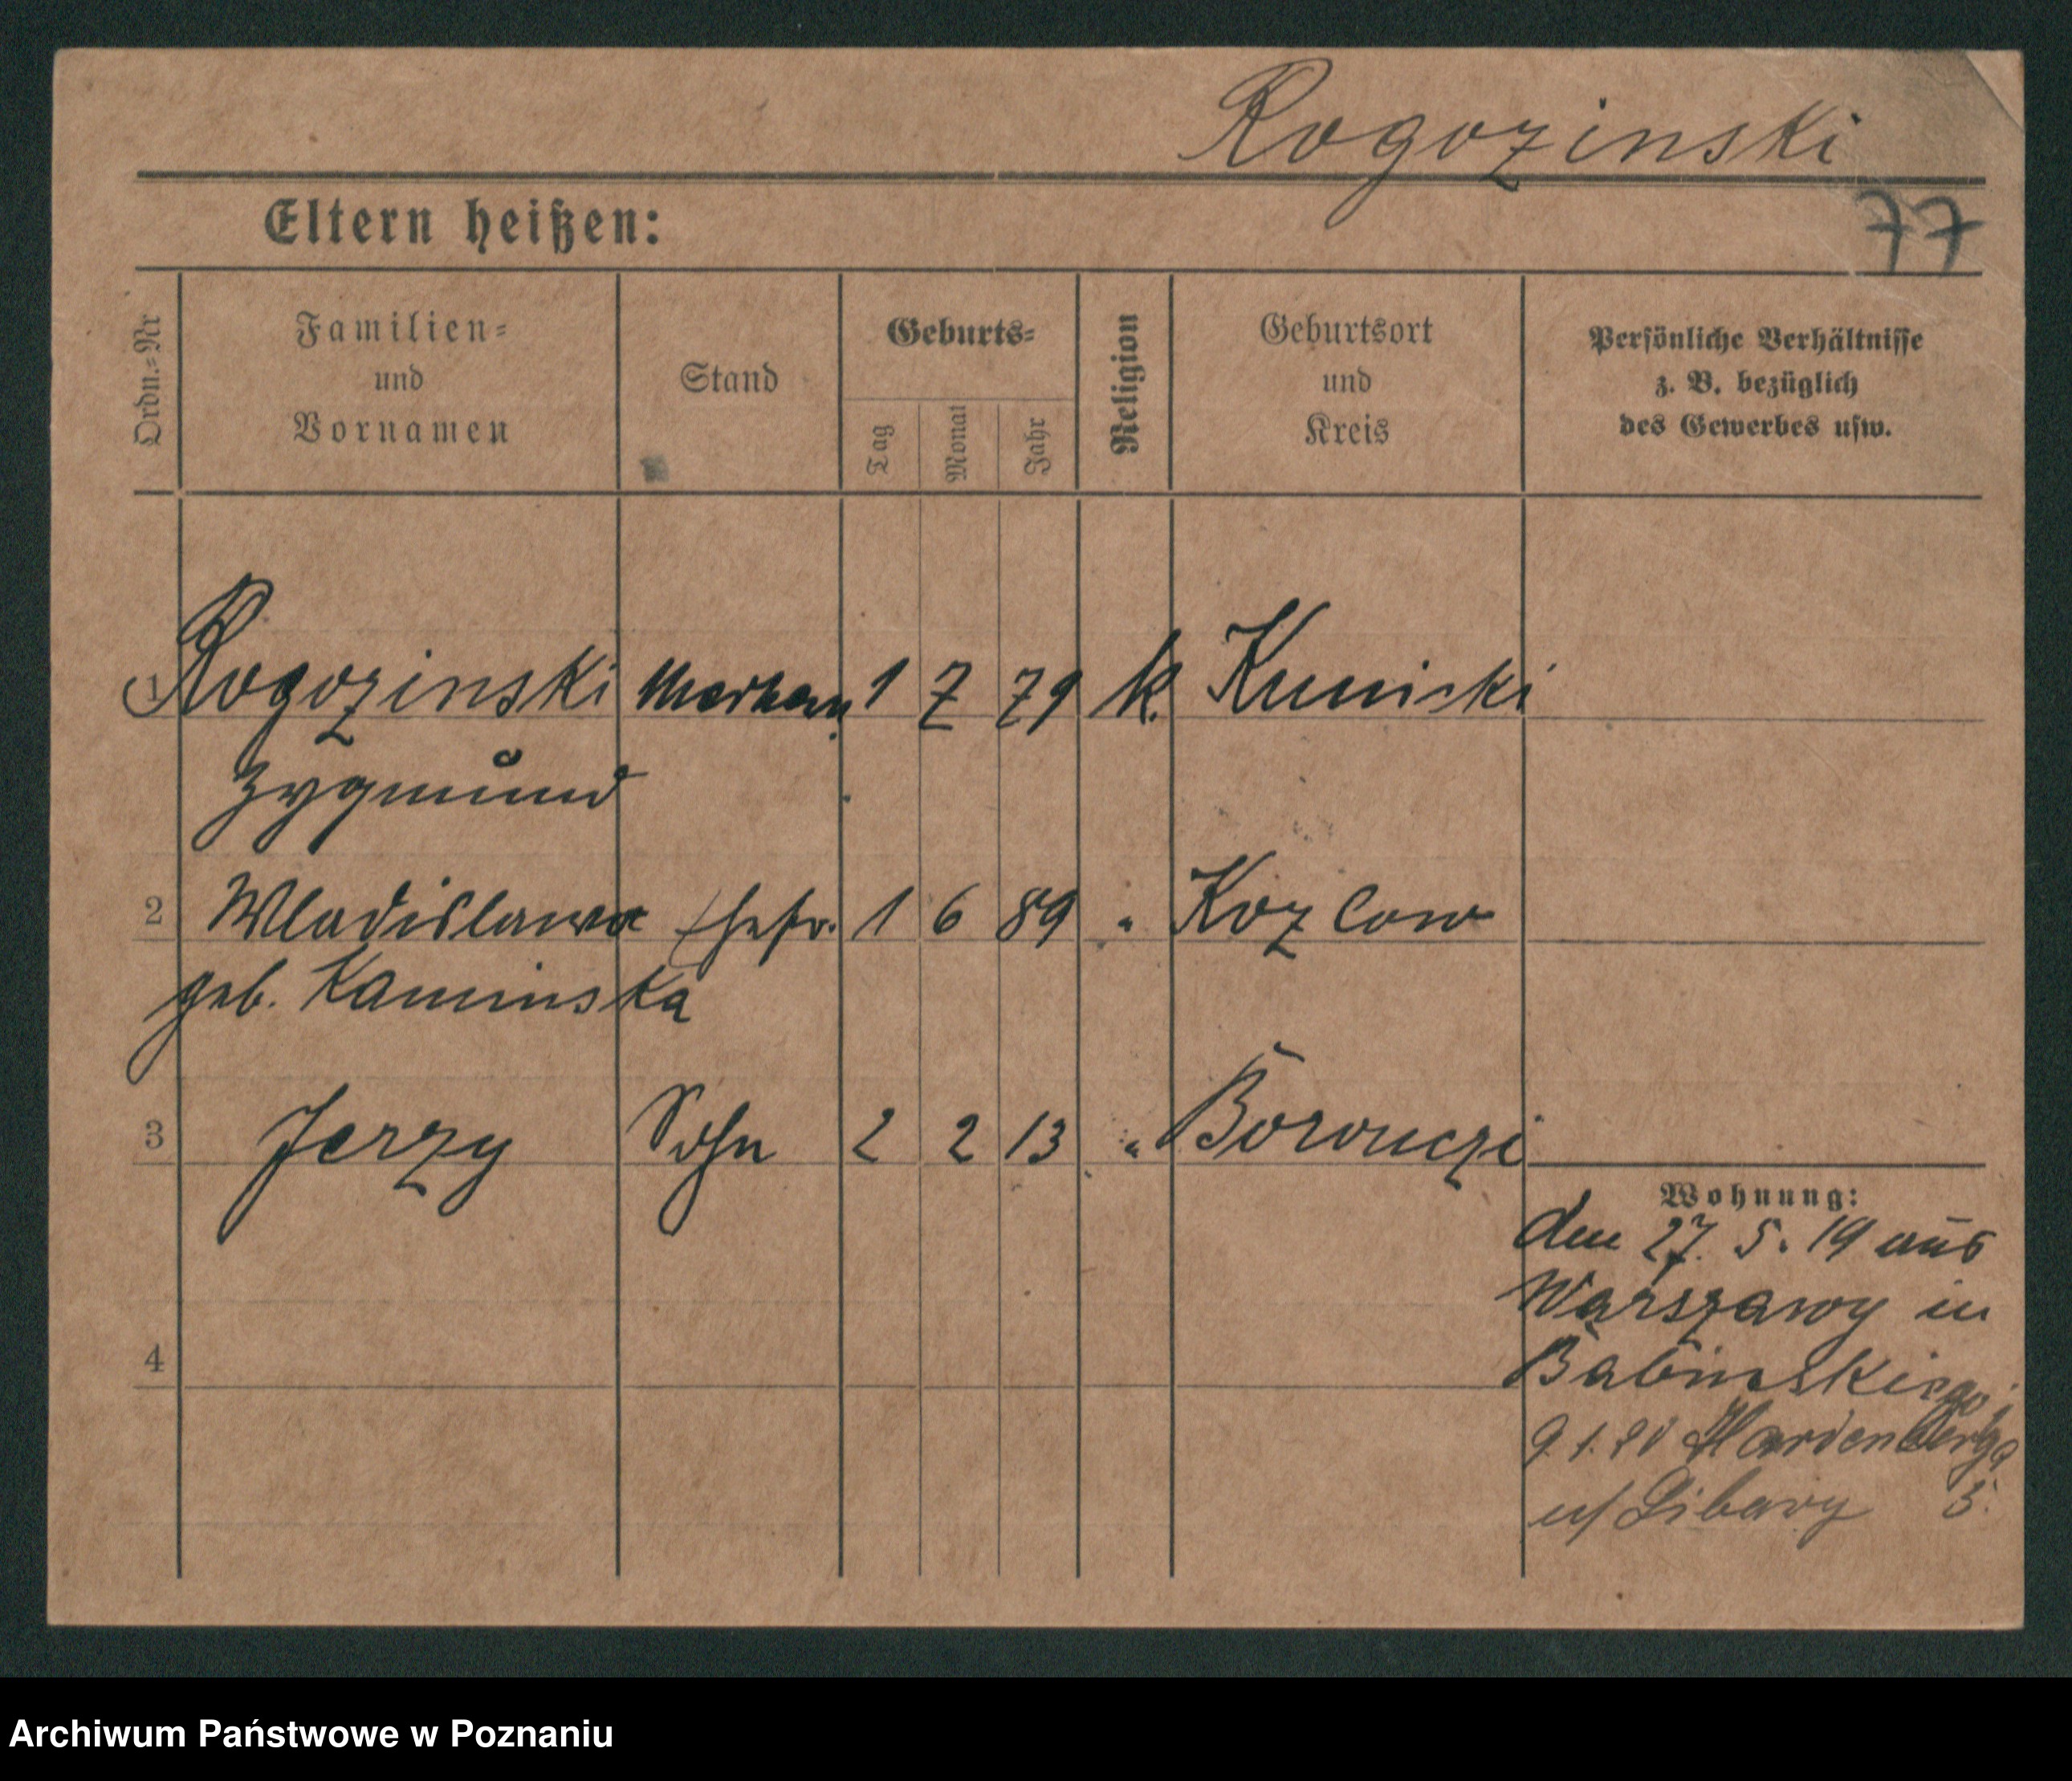 Rogozinski
77
Eltern heißen:
Ordn.=Nr
Familien=
und
Vornamen
Stand
Geburts=
Tag
Monat
Jahr
Religion
Geburtsort
und
Kreis
Persönliche Verhältnisse
z. B. bezüglich
des Gewerbes usw.
1 Rogozinski 1 7 79 k.
Zygmund
2 Wladislawa Ehefr. 1 6 89 " Kozlow
geb. Kaminska
3 Jerzy Sohn 2 2 13 "
Wohnung:
den 27. 5. 19 aus
Warszawy in
4
9.1.20 Hardenberga
5.
Archiwum Państwowe w Poznaniu